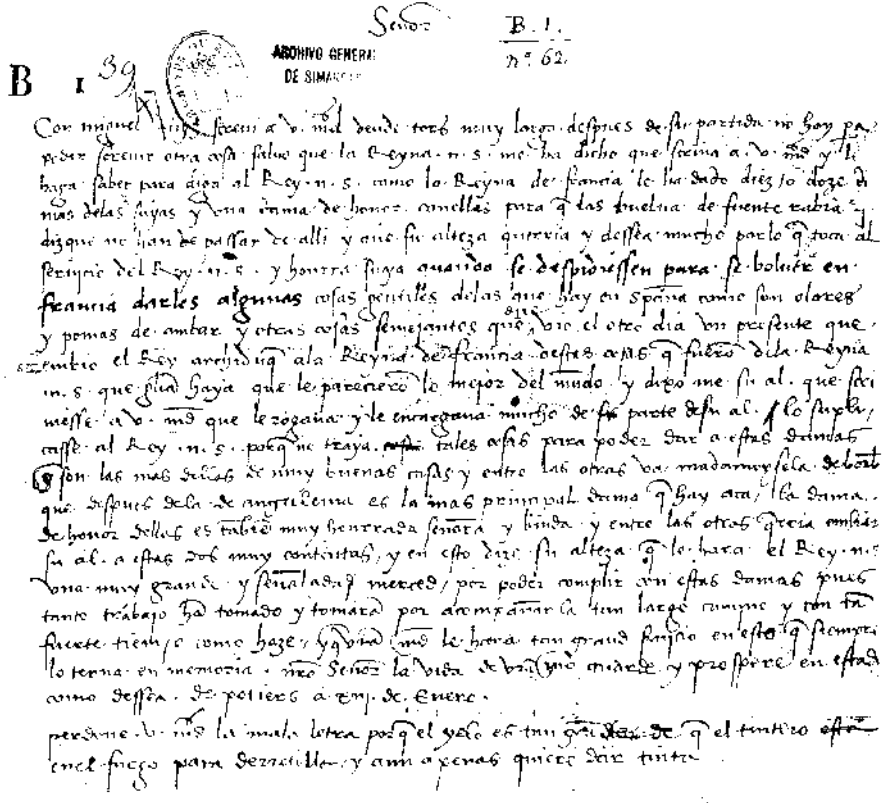 Señor
B. 1.
nº 62.
ARCHIVO GENERAL
DE SIMANCAS
B 1 39
Con miguel screui a v. md desde tors muy largo despues de su partida no hay para
poder screuir otra cosa saluo que la Reyna. n. s. me ha dicho que scriua a. v. md y le
haga saber para diga al Rey. n. s. como la Reyna de francia le ha dado diez o doze da
mas delas suyas y vna dama de honor conellas para q̃ las buelua de fuente rabia y
dizque no han de passar de alli y que su alteza querria y dessea mucho por lo q̃ toca al
seruicio del Rey. n. s. y honrra suya quando se despidiessen para se boluer en
francia darles algunas cosas gentiles delas que hay en Spaña como son olores
y pomas de ambar y otras cosas semejantes que dize vio el otro dia vn presente que
embio el Rey archiduq̃ ala Reyna de francia destas cosas q̃ fuero dela Reyna
n. s. que gloria haya que le pareciero lo mejor del mundo y dixo me su al. que scri
uiesse a v. md que le rogaua y le encargaua mucho de su parte de su al. lo supli
casse al Rey. n. s. porq̃ no traya tales cosas para poder dar a estas damas
q̃ son las mas dellas de muy buenas casas y entre las otras va madamuysela de borbo
que despues dela de angulema es la mas principal dama q̃ hay aca / la dama
de honor dellas es tãbie muy honrrada señora y linda y entre las otras q̃rria embiar
su al. a estas dos muy contentas / y en esto dize su alteza q̃ le hara el Rey n. s.
vna muy grande y señalada merced / por poder complir con estas damas pues
tanto trabajo hã tomado y tomarã por acompañarla tan largo camino y con tã
fuerte tiempo como haze / y q̃ vrã md le hara tan grand seruicio en esto q̃ siempre
lo terna en memoria. nro Señor la vida de vrã md guarde y prospere en estado
como dessea. de potiers a xiij de Enero.
perdone. v. md la mala letra porq̃ el yelo es tan grãde de q̃ el tintero
enel fuego para derretille y aun apenas quiere dar tinta